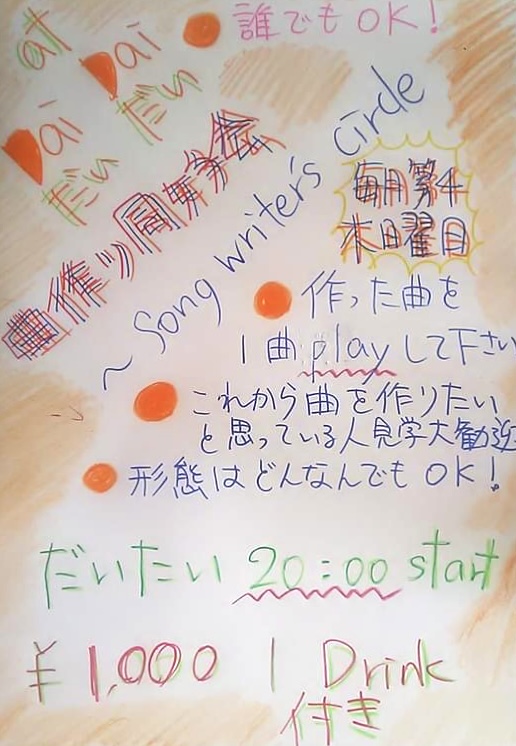 誰でもOK!
at
ai
ai
だい
だい
曲作り同好会
~ Song writer's Circle
毎月第4
木曜日
作った曲を
1曲playして下さい
これから曲を作りたい
と思っている人見学大歓迎
形態はどんなんでもOK!
だいたい 20:00 start
¥1,000 1 Drink
付き